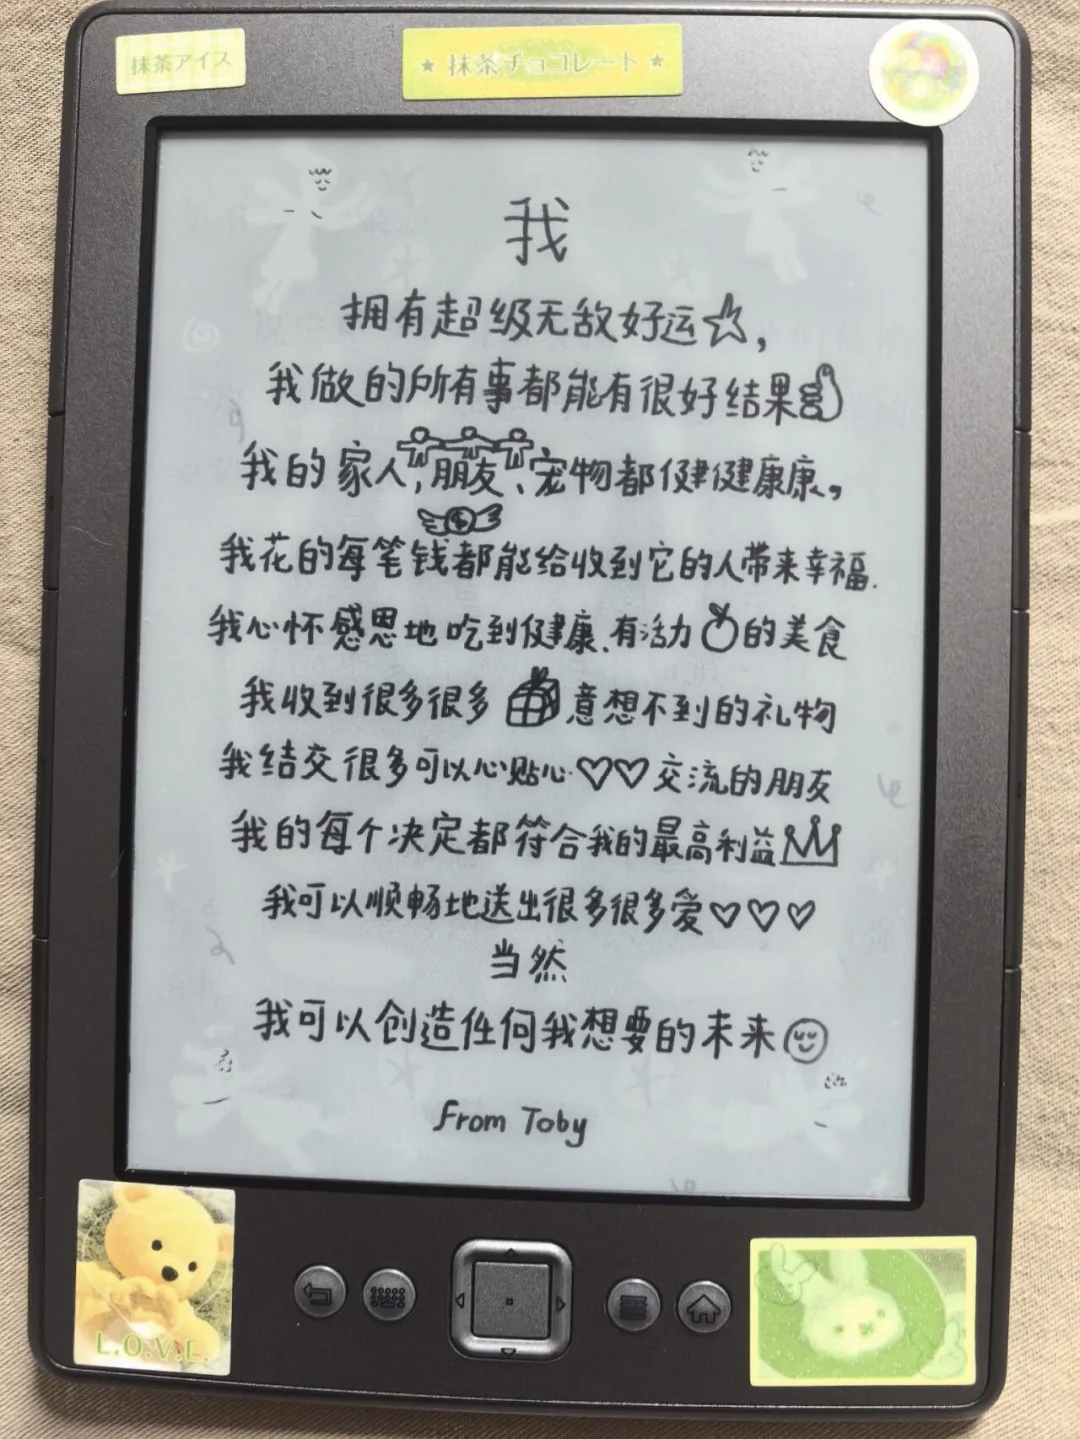 抹茶アイス
★ 抹茶チョコレート ★
我
拥有超级无敌好运☆,
我做的所有事都能有很好结果
我的家人,朋友、宠物都健健康康,
我花的每笔钱都能给收到它的人带来幸福.
我心怀感恩地吃到健康、有活力的美食
我收到很多很多意想不到的礼物
我结交很多可以心贴心♡♡交流的朋友
我的每个决定都符合我的最高利益
我可以顺畅地送出很多很多爱♡♡♡
当然
我可以创造任何我想要的未来
From Toby
L.O.V.E.